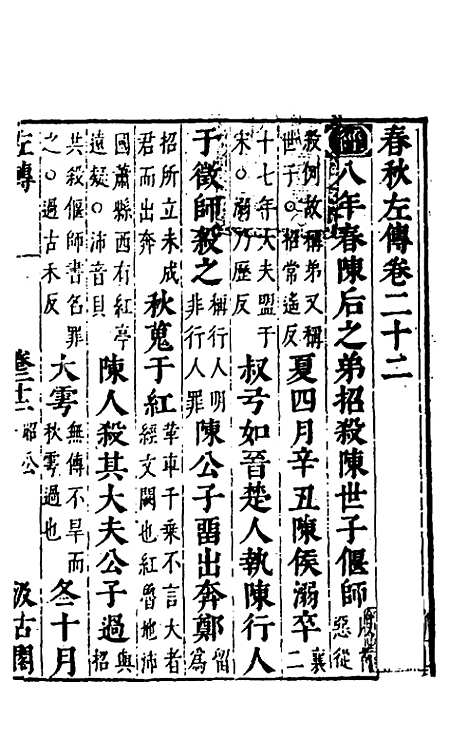 春秋左傳卷二十二
經八年春陳后之弟招殺陳世子偃師 惡從
殺例故稱弟又稱
世子○招常遙反 夏四月辛丑陳侯溺卒 襄二
十七年大夫盟于
宋○溺乃歷反 叔弓如晉楚人執陳行人
于徵師殺之 稱行人明
非行人罪 陳公子畱出奔鄭 畱爲
招所立未成
君而出奔 秋蒐于紅 革車千乘不言大者
經文闕也紅魯地沛
國蕭縣西有紅亭
遠疑○沛音貝 陳人殺其大夫公子過 與招
共殺偃師書名罪
之○過古禾反 大雩 無傳不旱而
秋雩過也 冬十月
左傳 一 卷二十二 昭公 汲古閣